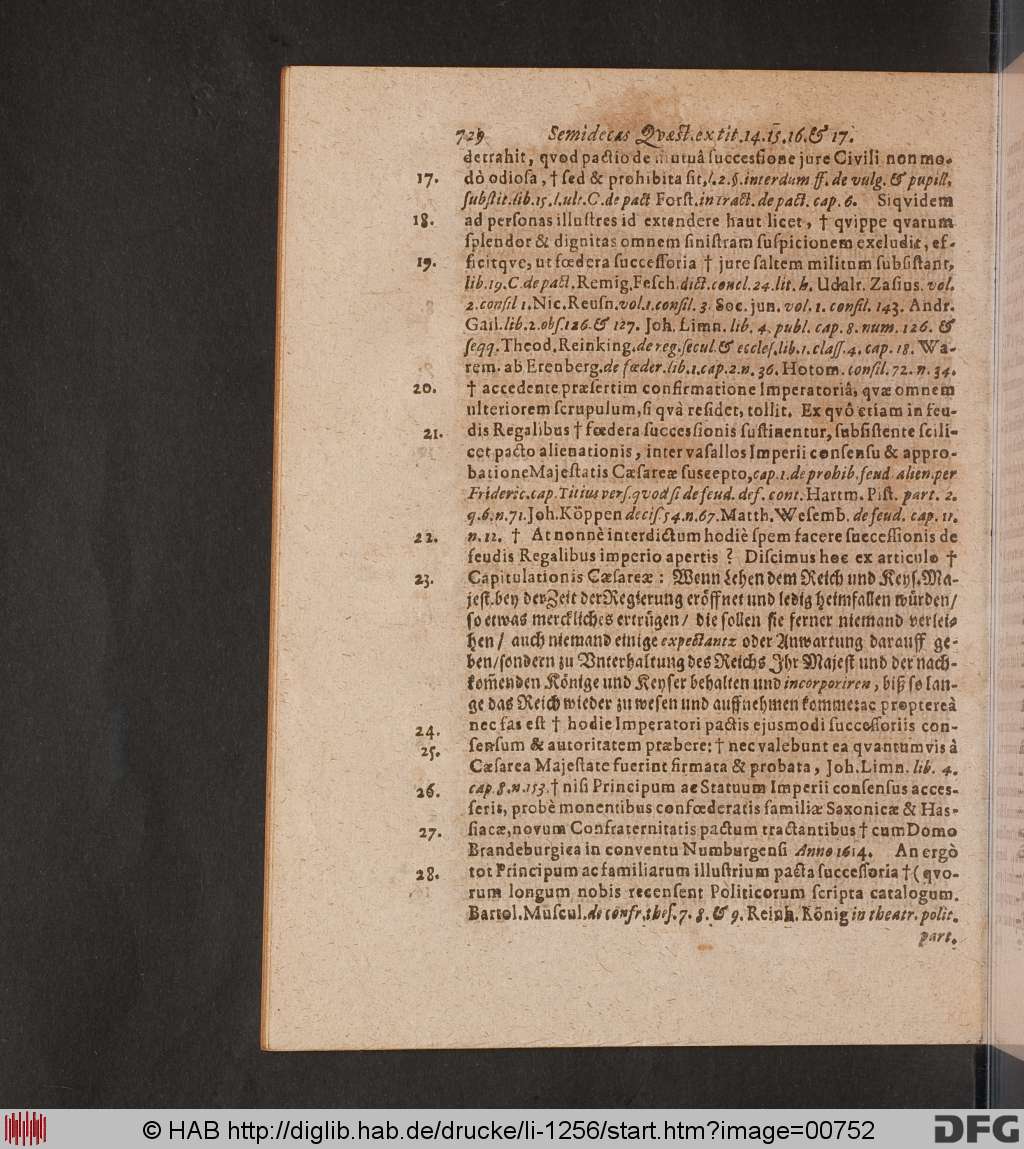 729 Semidecas Qvæst. ex tit. 14. 15. 16. & 17.
detrahit, qvod pactio de mutuâ successione jure Civili non mo-
17. dò odiosa, † sed & prohibita sit, l. 2. §. interdum ff. de vulg. & pupill.
substit. lib. 15. l. ult. C. de pact Forst. in tract. de pact. cap. 6. Siqvidem
18. ad personas illustres id extendere haut licet, † qvippe qvarum
splendor & dignitas omnem sinistram suspicionem excludit, ef-
19. ficitqve, ut fœdera successoria † jure saltem militum subsistant,
lib. 19. C. de pact. Remig. Fesch. dict. concl. 24. lit. h. Udalr. Zasius. vol.
2. consil 1. Nic. Reusn. vol. 1. consil. 3. Soc. jun. vol. 1. consil. 143. Andr.
Gail. lib. 2. obs. 126. & 127. Joh. Limn. lib. 4. publ. cap. 8. num. 126. &
seqq. Theod. Reinking. de reg. secul. & eccles. lib. 1. class. 4. cap. 18. Wa-
rem. ab Erenberg. de fœder. lib. 1. cap. 2. n. 36. Hotom. consil. 72. n. 34.
20. † accedente præsertim confirmatione Imperatoriâ, qvæ omnem
ulteriorem scrupulum, si qvà residet, tollit. Ex qvô etiam in feu-
21. dis Regalibus † fœdera successionis sustinentur, subsistente scili-
cet pacto alienationis, inter vasallos Imperii consensu & appro-
batione Majestatis Cæsareæ suscepto, cap. 1. de prohib. feud. alien. per
Frideric. cap. Titius vers. qvod si de feud. def. cont. Hartm. Pist. part. 2.
q. 6. n. 71. Joh. Köppen decis. 54. n. 67. Matth. Wesemb. de feud. cap. 11.
22. n. 12. † At nonnè interdictum hodiè spem facere successionis de
feudis Regalibus imperio apertis? Discimus hoc ex articulo †
23. Capitulationis Cæsareæ: Wenn Lehen dem Reich und Keys. Ma-
jest. bey der Zeit der Regierung eröffnet und ledig heimfallen würden/
so etwas merckliches ertrügen/ die sollen sie ferner niemand verlei-
hen/ auch niemand einige expectantz oder Anwartung darauff ge-
ben/ sondern zu Vnterhaltung des Reichs Ihr Majest und der nach-
kom̃enden Könige und Keyser behalten und incorporiren, biß so lan-
ge das Reich wieder zu wesen und auffnehmen komme: ac proptereà
24. nec fas est † hodie Imperatori pactis ejusmodi successoriis con-
25. sensum & autoritatem præbere: † nec valebunt ea qvantumvis à
Cæsarea Majestate fuerint firmata & probata, Joh. Limn. lib. 4.
26. cap. 8. n. 153. † nisi Principum ac Statuum Imperii consensus acces-
serit, probè monentibus confœderatis familiæ Saxonicæ & Has-
27. siacæ, novum Confraternitatis pactum tractantibus † cum Domo
Brandeburgica in conventu Numburgensi Anno 1614. An ergò
28. tot Principum ac familiarum illustrium pacta successoria † (qvo-
rum longum nobis recensent Politicorum scripta catalogum.
Bartol. Muscul. de confr. thes. 7. 8. & 9. Reinh. König in theatr. polit.
part.
© HAB http://diglib.hab.de/drucke/li-1256/start.htm?image=00752
DFG